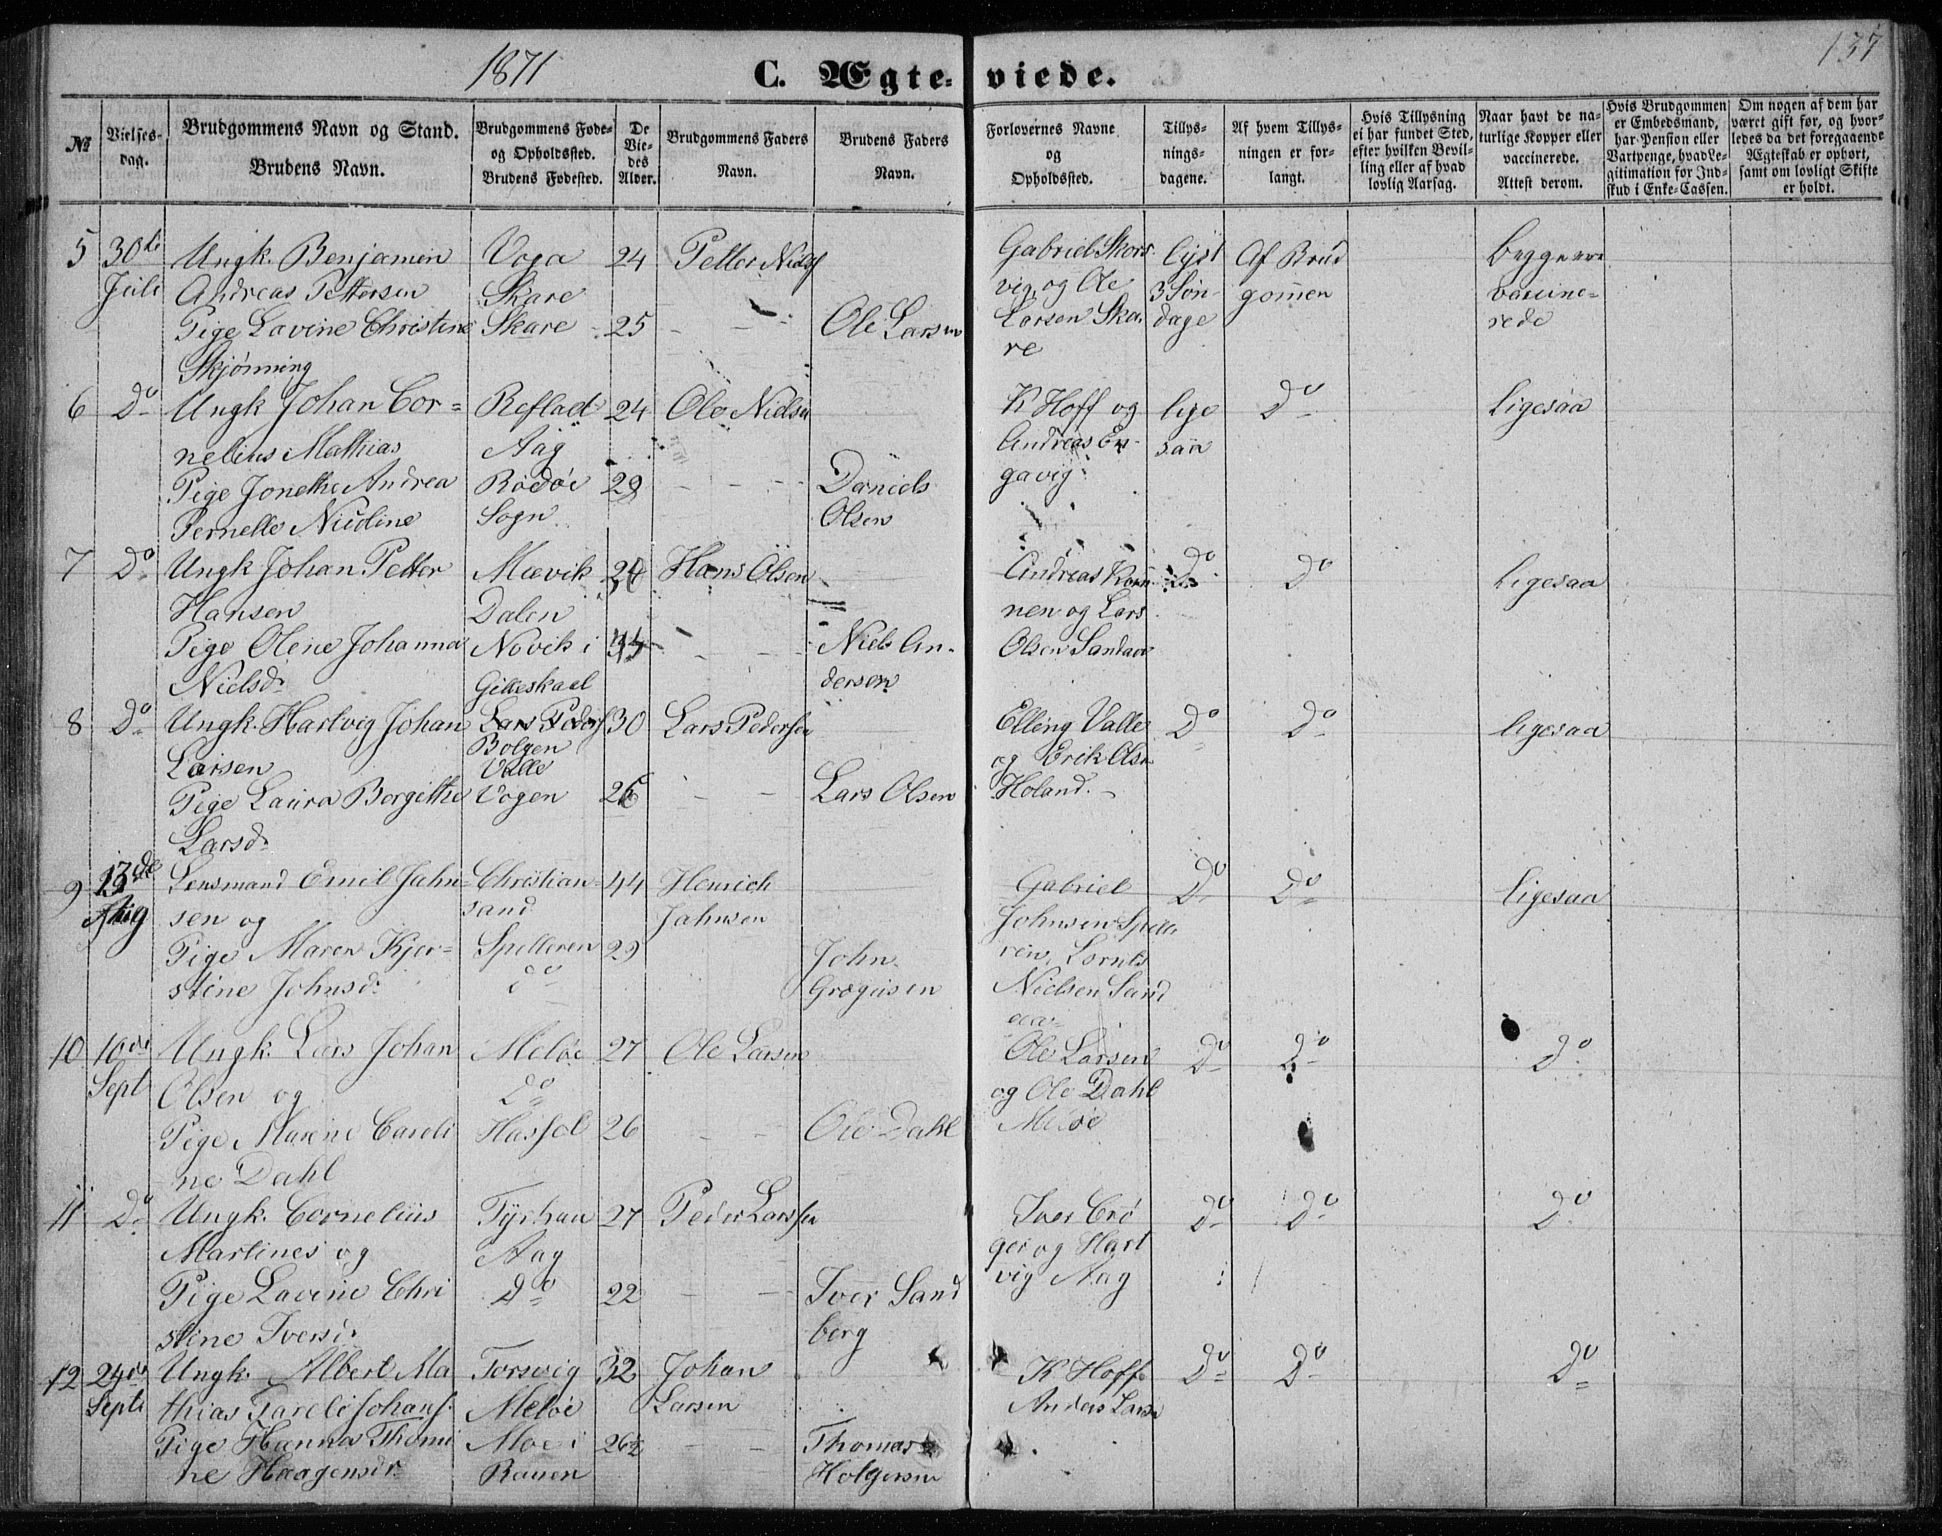 1871
C. Ægteviede.
137
№
Vielsesdag.
Brudgommens Navn og Stand.
Brudens Navn.
Brudgommens Fødeog Opholdssted.
Brudens Fødested.
De Viedes Alder.
Brudgommens Faders Navn.
Brudens Faders Navn.
Forlovernes Navne og Opholdssted.
Tillysningsdagene.
Af hvem Tillysningen er forlangt.
Hvis Tillysning ei har fundet Sted, efter hvilken Bevilling eller af hvad lovlig Aarsag.
Naar havt de naturlige Kopper eller vaccinerede. Attest derom.
Hvis Brudgommen er Embedsmand, har Pension eller Vartpenge, hvad Legitimation for Indskud i Enke-Cassen.
Om nogen af dem har været gift før, og hvorledes da det foregaaende Ægteskab er ophørt, samt om lovligt Skifte er holdt.
5 30te Ungk. Benjamin Voga 24 Petter Niels Gabriel Skors lyst Af Brud begge ere
Juli Andreas Pettersen Skare vig og Ole 3 Søn- gomen vaccine-
Pige Lavine Christine Skare 25 - - Ole Larsen Larsen Ska dage rede
Skjønning re
6 Do Ungk Johan Cor= Reflad 24 Ole Nielsen K Hoff og lige Do Ligesaa
nelius Mathias Aag Andreas En saa
Pige Jonethe Andrea Rødøi 29 - - - Daniels gavig
Pernelle Nicoline Sogn Olsen
7 Do Ungk Johan Petter Mevik Hans Olsen Andreas Do Do Ligesaa
Hansen Dalen nen og Lars
Pige Olene Johanna Novik i - - Niels An- Olsen Sandaa
Nielsdr Gilleskaal dersen
8 Do Ungk. Hartvig Johan Lars Peders 30 Lars Pedersen Elling Valle Do Do ligesaa
Larsen Bolgen Valle og Erik Olsn
Pige Laura Bergithe Vogen 26 - - Lars Olsen Holand.
Larsdr
9 13de Lensmand Emil Jahn- Christian- 44 Henrich Gabriel Do Do ligesaa
Aug sen og sand Jahnsen Johnsen Spille
Pige Maren Kjer- Spelleren 29 John rein, Lornts
stine Johnsdr do Grogeisen Nielsen Sand
aa
10 10de Ungk. Lars Johan Meløe 27 Ole Larsen Ole Larsen Do Do Do
Sept Olsen og Do og Ole Dahl
Pige Marine Caroli Hassel 26 - - Ole Dahl Meløe
ne Dahl
11 Do Ungk. Cornelius 27 Peder Larssen Iver Do Do Do
Martines og Aag ger og Hart
Pige Lavine Chri Do 22 - - Iver Sand vig Aag
stine Iversdr berg
12 24de Ungk. Albert Ma Torsvig 32 Johan K Hoff Do Do Do
Septb thias Johans. Meløe Larsen Anders Larsn
Pige Hanna Thomi Moe i 26½ - - Thomas
ne Haagensdr. Ranen Holgersen